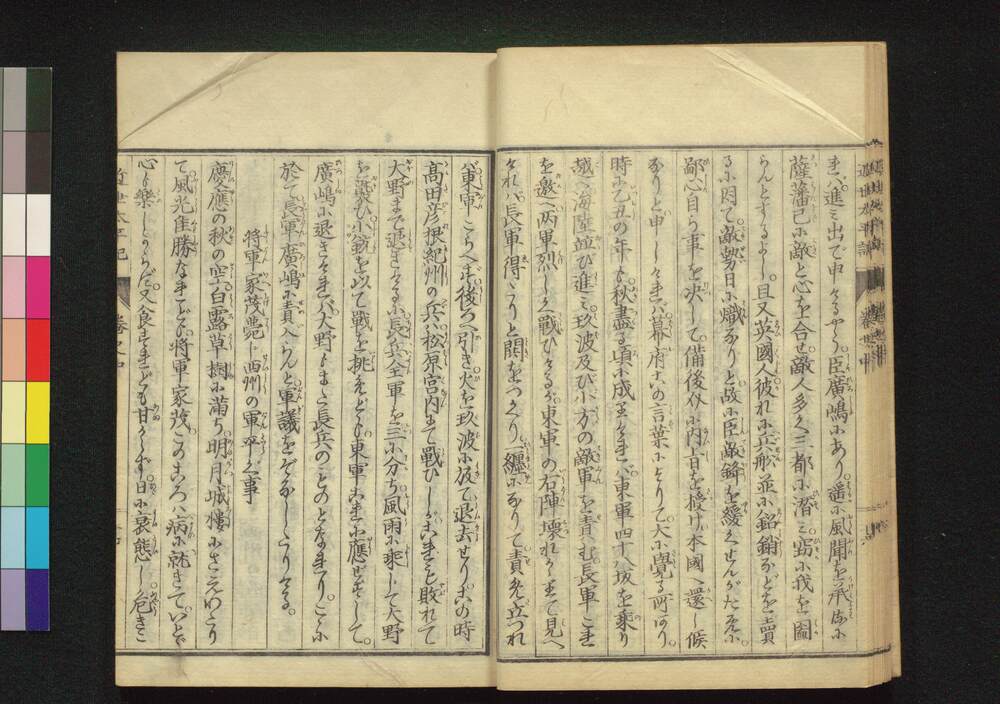 まかバ進ミ出で申けるやう臣廣嶋にあり。遙に風聞を承るに
薩藩已に敵と心を合せ敵人多く三都に潜ミ窃に我を圖
らんとするよし。且又英國人彼れに兵舩並に銘銷などを賣
るに因て敵勢日に熾なりと故に臣敵鋒を緩くせんがために。
鄙心自ら事を决して備後外に内旨を授け本國へ還し候
なりと申しければ幕府この言葉によりて大に覺る所あり。
時に乙丑の年も秋盡る頃に成ければ東軍四十八坂を乗り
越へ海陸並び進ミ玖波及び小方の敵軍を責む長軍これ
を邀へ两軍烈しく戰ひけるが東軍の右陣壊れかゝるを見へ
けれバ長軍得たりと鬨をつくり一纏になりて責め立つれ
バ東軍こらへず後ろへ引き火を玖波に放て退去せりこの時
髙田彦根紀州の兵ハ松原宮内まて戰ひしがこれも敗れて
大野まで退きける長兵全軍を三に分ち風雨に乘して大野
を襲ひ小銃を以て戰を挑めども東軍これに應ぜずして。
廣嶋に退きければ大野もまた長兵のものとなれり。こゝに
於て長軍廣嶋に責入らんと軍議をぞなしたりける。
将軍家茂薨し西州の軍卒之事
慶應の秋の空白露草樹に滿ち明月城樓にさえわたり
て風光佳勝なれども将軍家茂このころハ病に就きて。いとゞ
心も樂しからだ又食すれども甘からず日に衰態し危きこ
近世太平記
卷之中